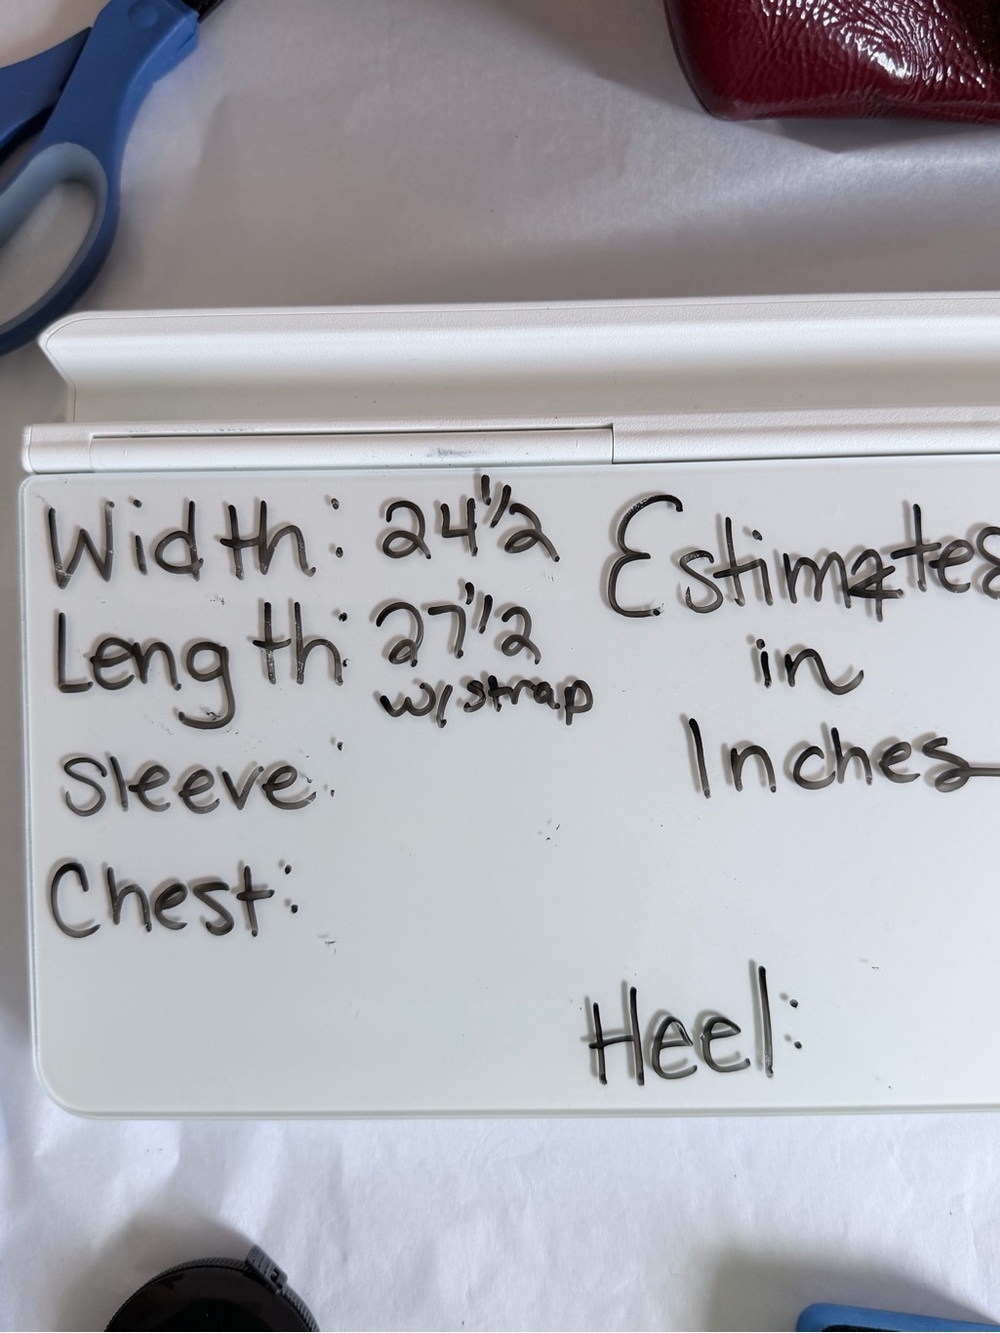 Width: 24 1/2
Length: 27 1/2
w/ strap
Sleeve:
Chest:
Estimates
in
Inches
Heel: